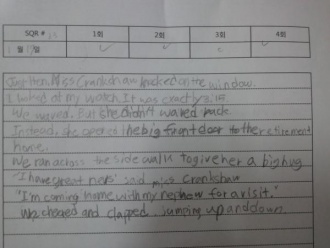 SQR # 1회 2회 3회 4회
월 일
Just then, Miss Crankshaw knocked on the window.
I looked at my watch. It was exactly 3:15.
We waved. But she didn't waved back.
Instead, she opened the big front door to the retirement
home.
We ran across the side walk to give her a big hug.
"I have great news" said miss Crankshaw
"I'm coming home with my nephew for a visit."
We cheered and clapped, jumping up and down.